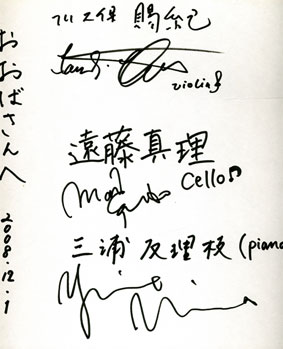 おおばさんへ
2008.12.1
川久保 賜紀
violin
遠藤真理
Cello♪
三浦友理枝(piano